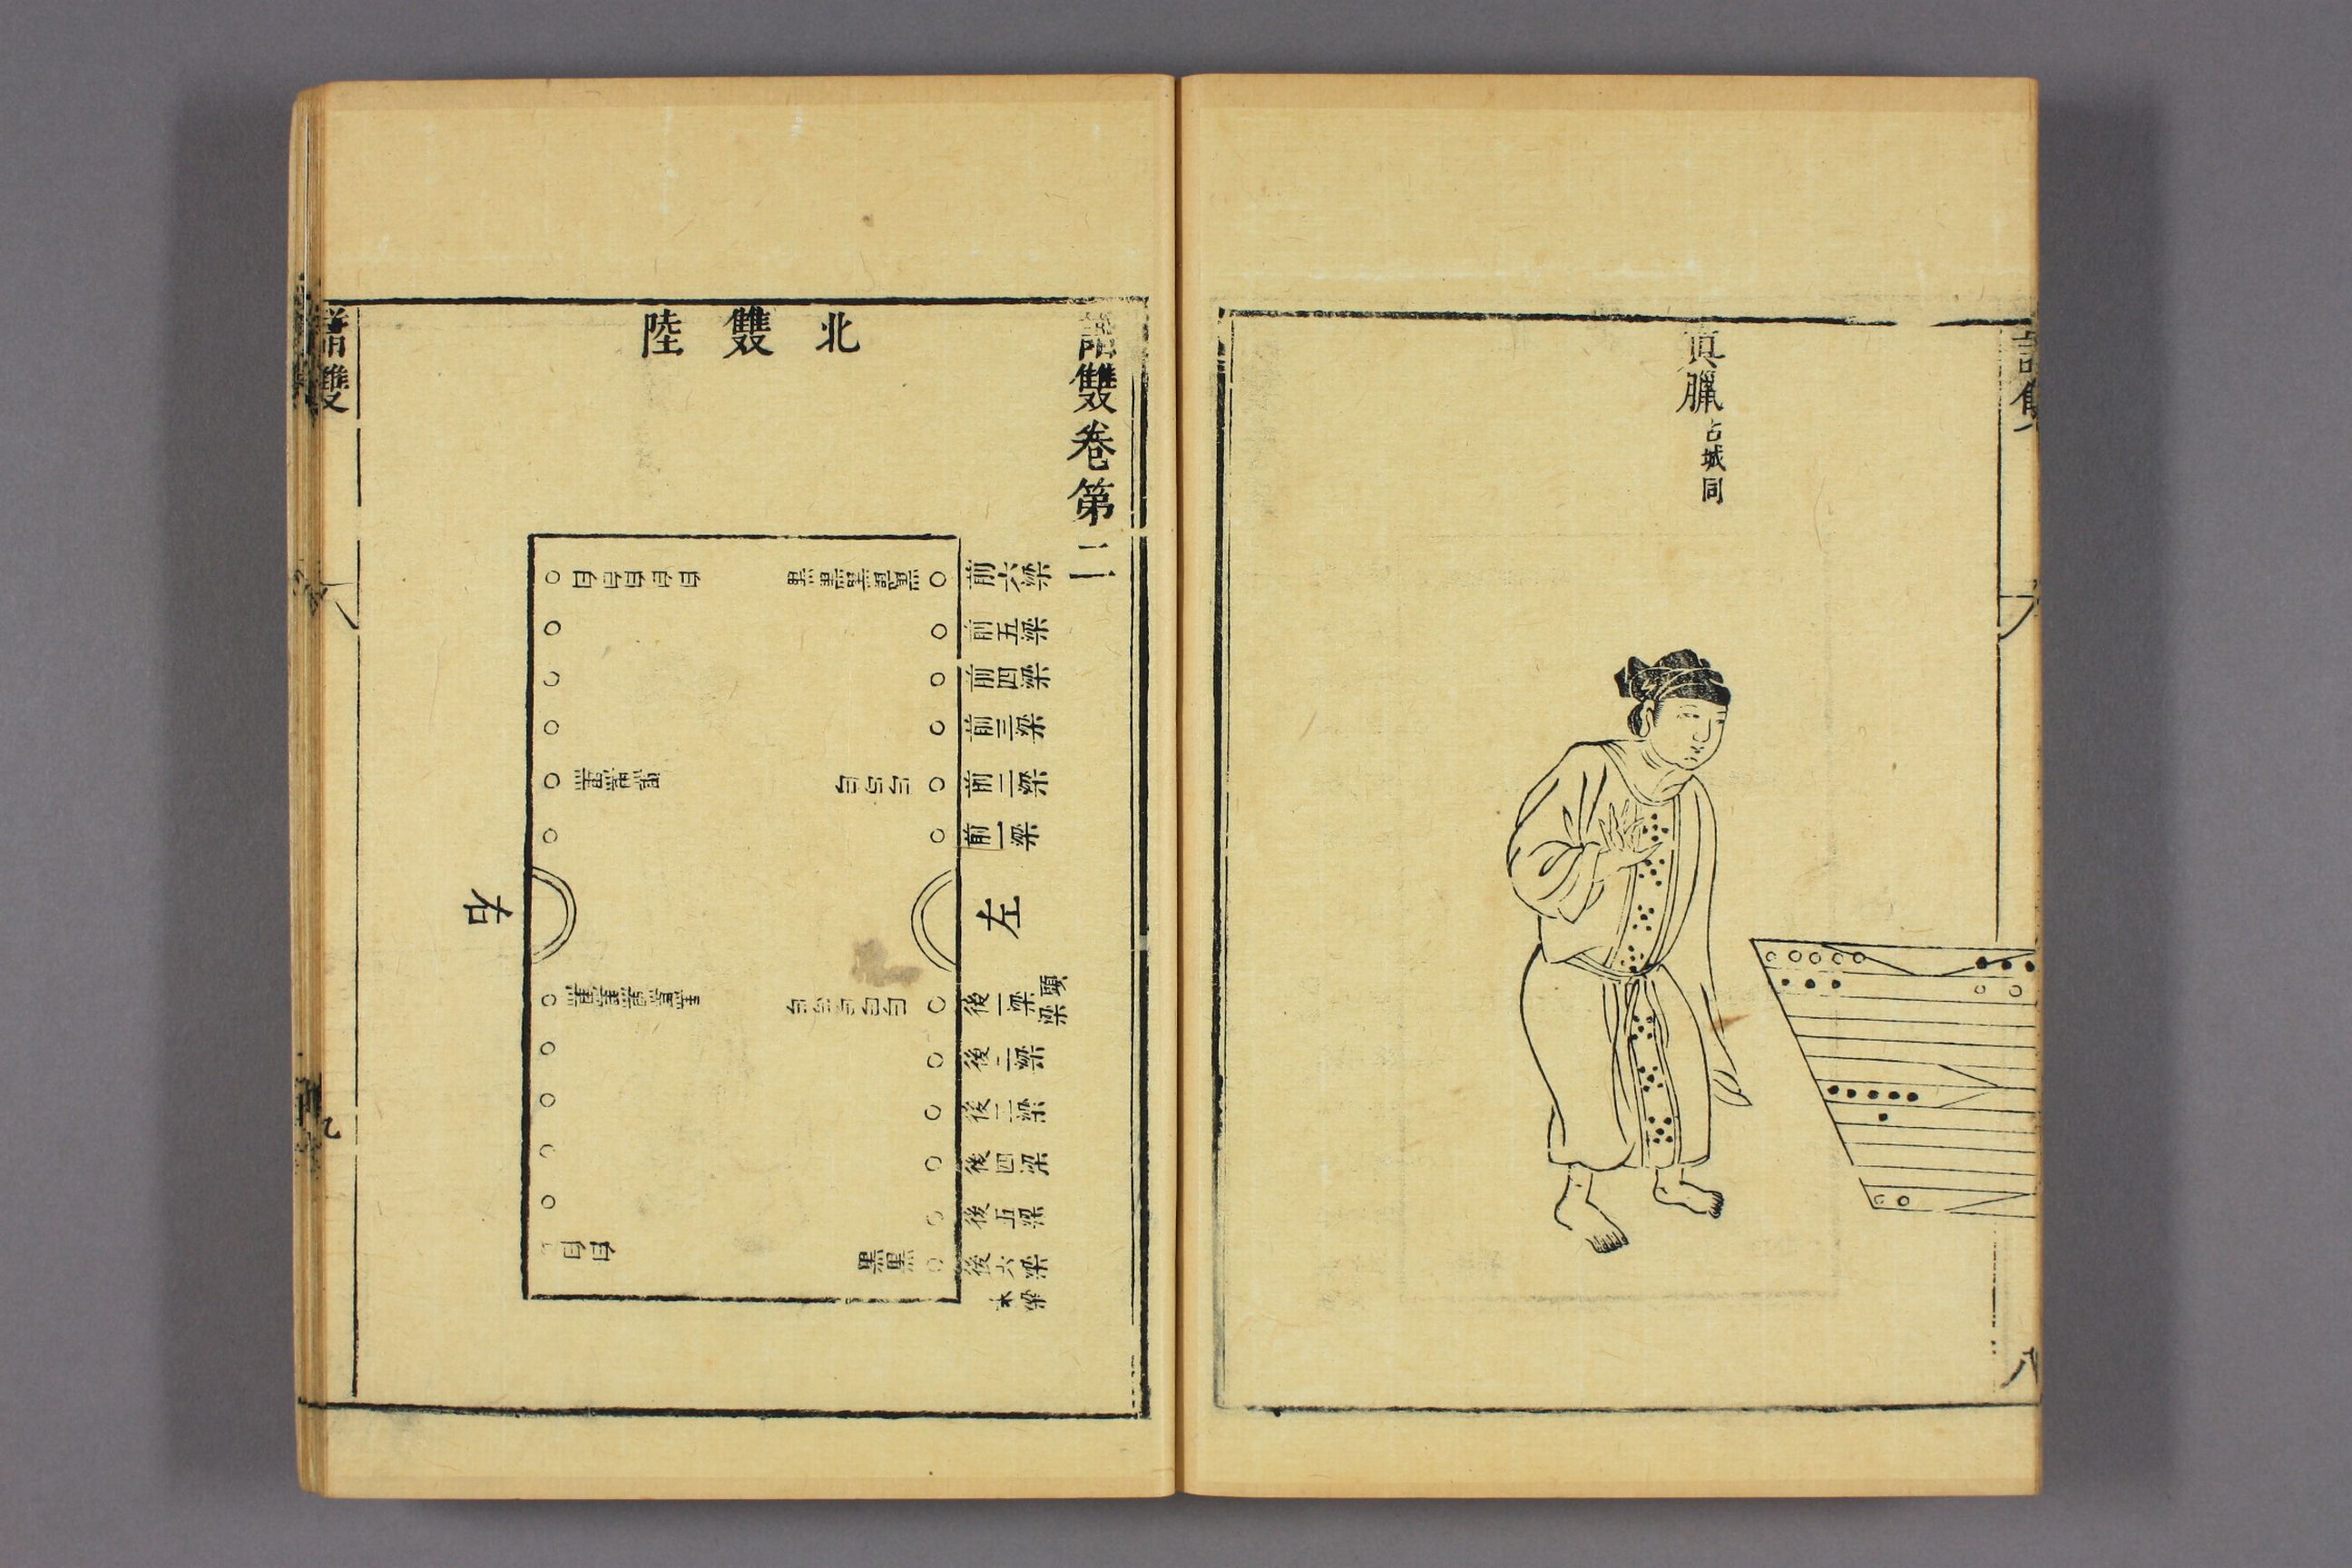 真臘占城同
八
譜雙卷第二
北雙陸
前六梁
前五梁
前四梁
前三梁
前二梁
前一梁
左
後一梁 頭梁
後二梁
後三梁
後四梁
後五梁
後六梁 末梁
黑黑黑黑黑
白白白
白白白白白
黑黑
白白白白白
黑黑黑
黑黑黑黑黑
白白
右
譜雙